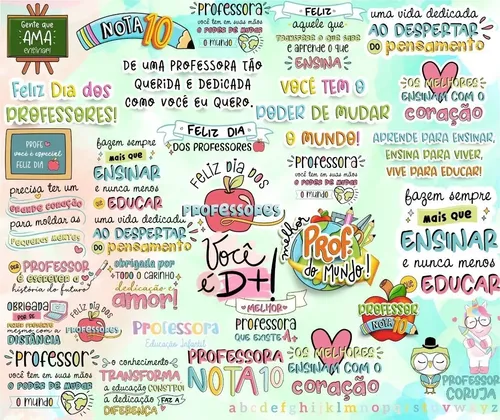 Gente que
AMA
ensinar!
NOTA 10
Professora
você tem em suas mãos
o poder de mudar
o mundo
FELIZ
aquele que
transfere o que sabe
e aprende o que
ENSINA
uma vida dedicada
AO DESPERTAR
DO pensamento
DE UMA PROFESSORA TÃO
QUERIDA E DEDICADA
COMO VOCÊ EU QUERO.
Feliz Dia dos
PROFESSORES!
VOCÊ TEM O
PODER DE MUDAR
O MUNDO!
OS MELHORES
ENSINAM COM O
coração
FELIZ DIA
DOS PROFESSORES
PROFE
você é especial
FELIZ DIA
fazem sempre
mais que
ENSINAR
e nunca menos
que
EDUCAR
Professora
você tem em suas mãos
o poder de mudar
o mundo
APRENDE PARA ENSINAR,
ENSINA PARA VIVER,
VIVE PARA EDUCAR!
precisa ter um
GRANDE CORAÇÃO
para moldar as
PEQUENAS MENTES
FELIZ DIA DOS
PROFESSORES
uma vida dedicada
AO DESPERTAR
DO pensamento
fazem sempre
mais que
ENSINAR
e nunca menos
que
EDUCAR
Você
é D+!
melhor
PROF.
do mundo!
SER
PROFESSOR
É ESCREVER A
história do futuro!
obrigada por
TODO O CARINHO
dedicação e
amor!
OBRIGADA
POR SE
mesmo com a
DISTÂNCIA
FELIZ DIA
DOS
PROFESSORES
Professora
Educação Infantil
MELHOR
PROFESSORA
QUE EXISTE
PROFESSOR
NOTA 10
Professor
você tem em suas mãos
o poder de mudar
o mundo
o conhecimento
TRANSFORMA
a educação constrói
a dedicação FAZ A
DIFERENÇA
PROFESSORA
NOTA 10
OS MELHORES
ENSINAM COM O
coração
PROFESSOR
CORUJA
abcdefghijklmnopqrstuvwxyz